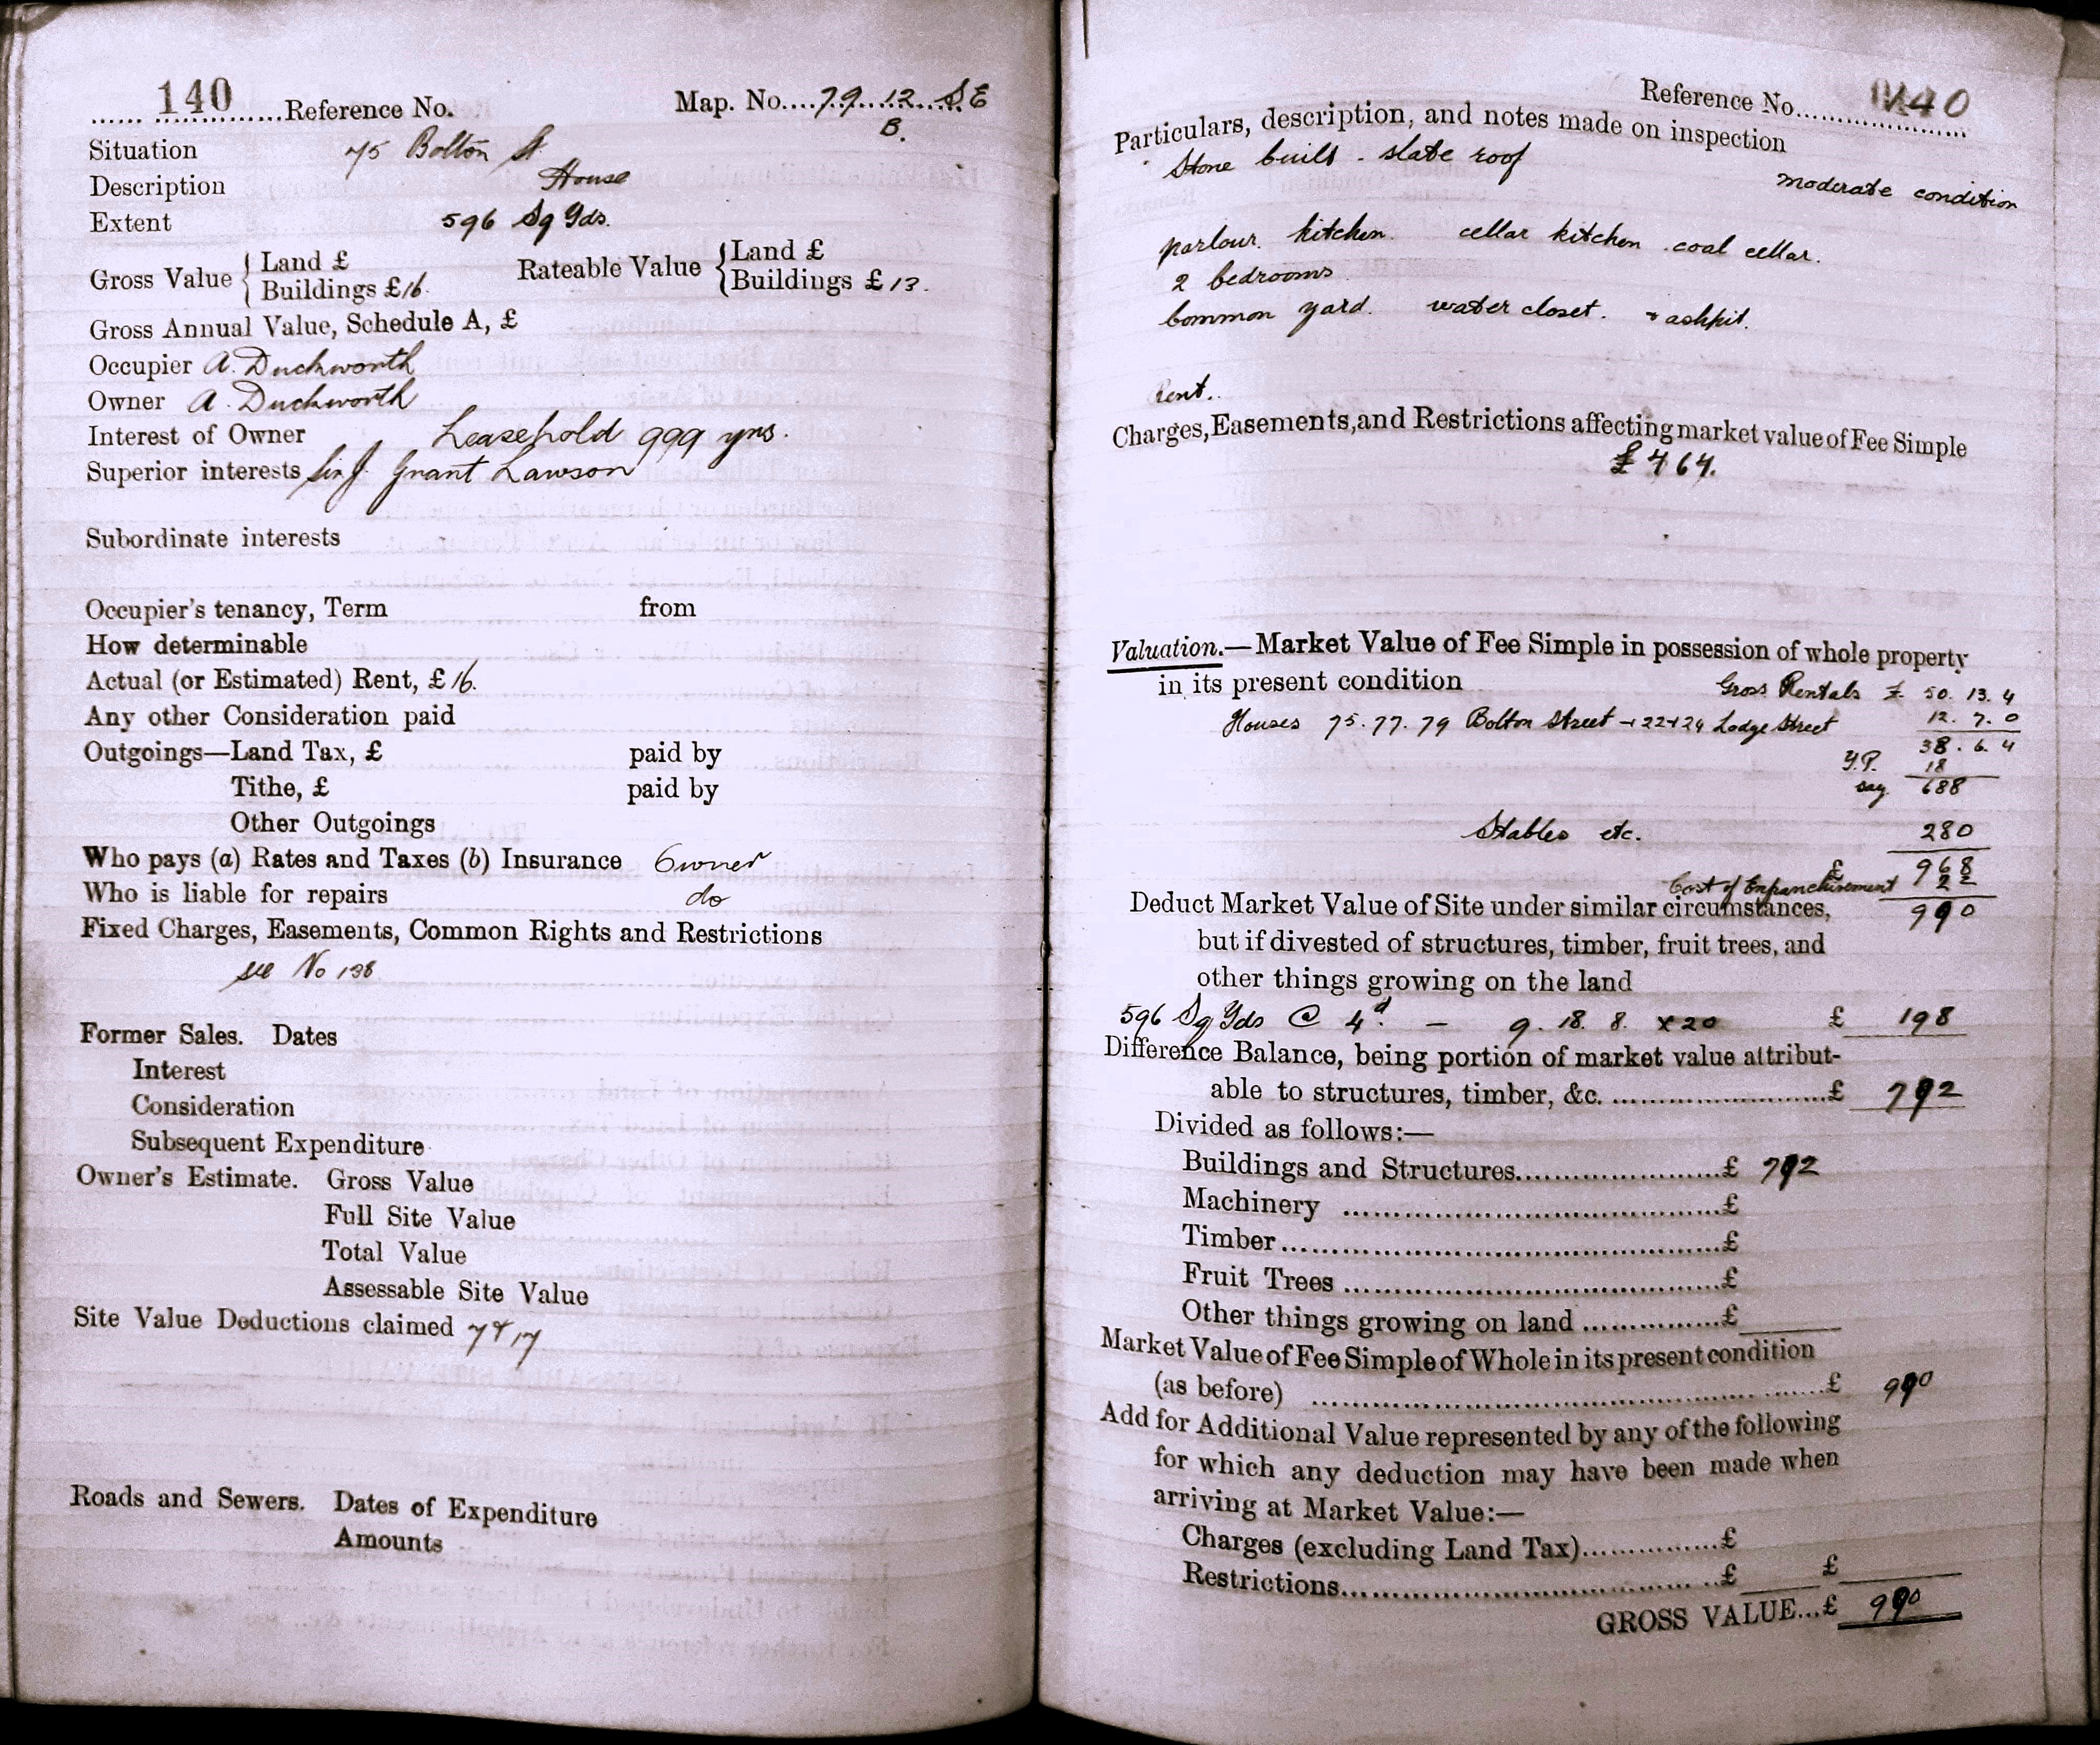 140 Reference No. Map. No. 79. 12. S.E
B.
Situation 75 Bolton St
Description House
Extent 596 Sq Yds.
Gross Value { Land £ Rateable Value { Land £
Buildings £ 16. Buildings £ 13.
Gross Annual Value, Schedule A, £
Occupier A. Duckworth
Owner A. Duckworth
Interest of Owner Leasehold 999 yrs.
Superior interests Sir J. Grant Lawson
Subordinate interests
Occupier's tenancy, Term from
How determinable
Actual (or Estimated) Rent, £ 16.
Any other Consideration paid
Outgoings—Land Tax, £ paid by
Tithe, £ paid by
Other Outgoings
Who pays (a) Rates and Taxes (b) Insurance Owner
Who is liable for repairs do
Fixed Charges, Easements, Common Rights and Restrictions
see No 138
Former Sales. Dates
Interest
Consideration
Subsequent Expenditure
Owner's Estimate. Gross Value
Full Site Value
Total Value
Assessable Site Value
Site Value Deductions claimed
Roads and Sewers. Dates of Expenditure
Amounts
Reference No. 140
Particulars, description, and notes made on inspection
Stone built - slate roof
moderate condition
parlour. kitchen. cellar kitchen . coal cellar.
2 bedrooms
Common yard. water closet. + ashpit.
Rent.
Charges, Easements, and Restrictions affecting market value of Fee Simple
£ 464.
Valuation.—Market Value of Fee Simple in possession of whole property
in its present condition Gross Rentals £ 50. 13. 4
Houses 75. 77. 79 Bolton Street + 22+24 Lodge Street 12. 7. 0
38. 6. 4
Y.P. 18
say 688
Stables etc. 280
£ 968
Cost of Enfranchisement 22
Deduct Market Value of Site under similar circumstances, 990
but if divested of structures, timber, fruit trees, and
other things growing on the land
596 Sq Yds @ 4d. - 9. 18. 8. x 20 £ 198
Difference Balance, being portion of market value attribut-
able to structures, timber, &c. £ 792
Divided as follows:—
Buildings and Structures £ 792
Machinery £
Timber £
Fruit Trees £
Other things growing on land £
Market Value of Fee Simple of Whole in its present condition
(as before) £ 990
Add for Additional Value represented by any of the following
for which any deduction may have been made when
arriving at Market Value:—
Charges (excluding Land Tax) £
Restrictions £ £
GROSS VALUE...£ 990